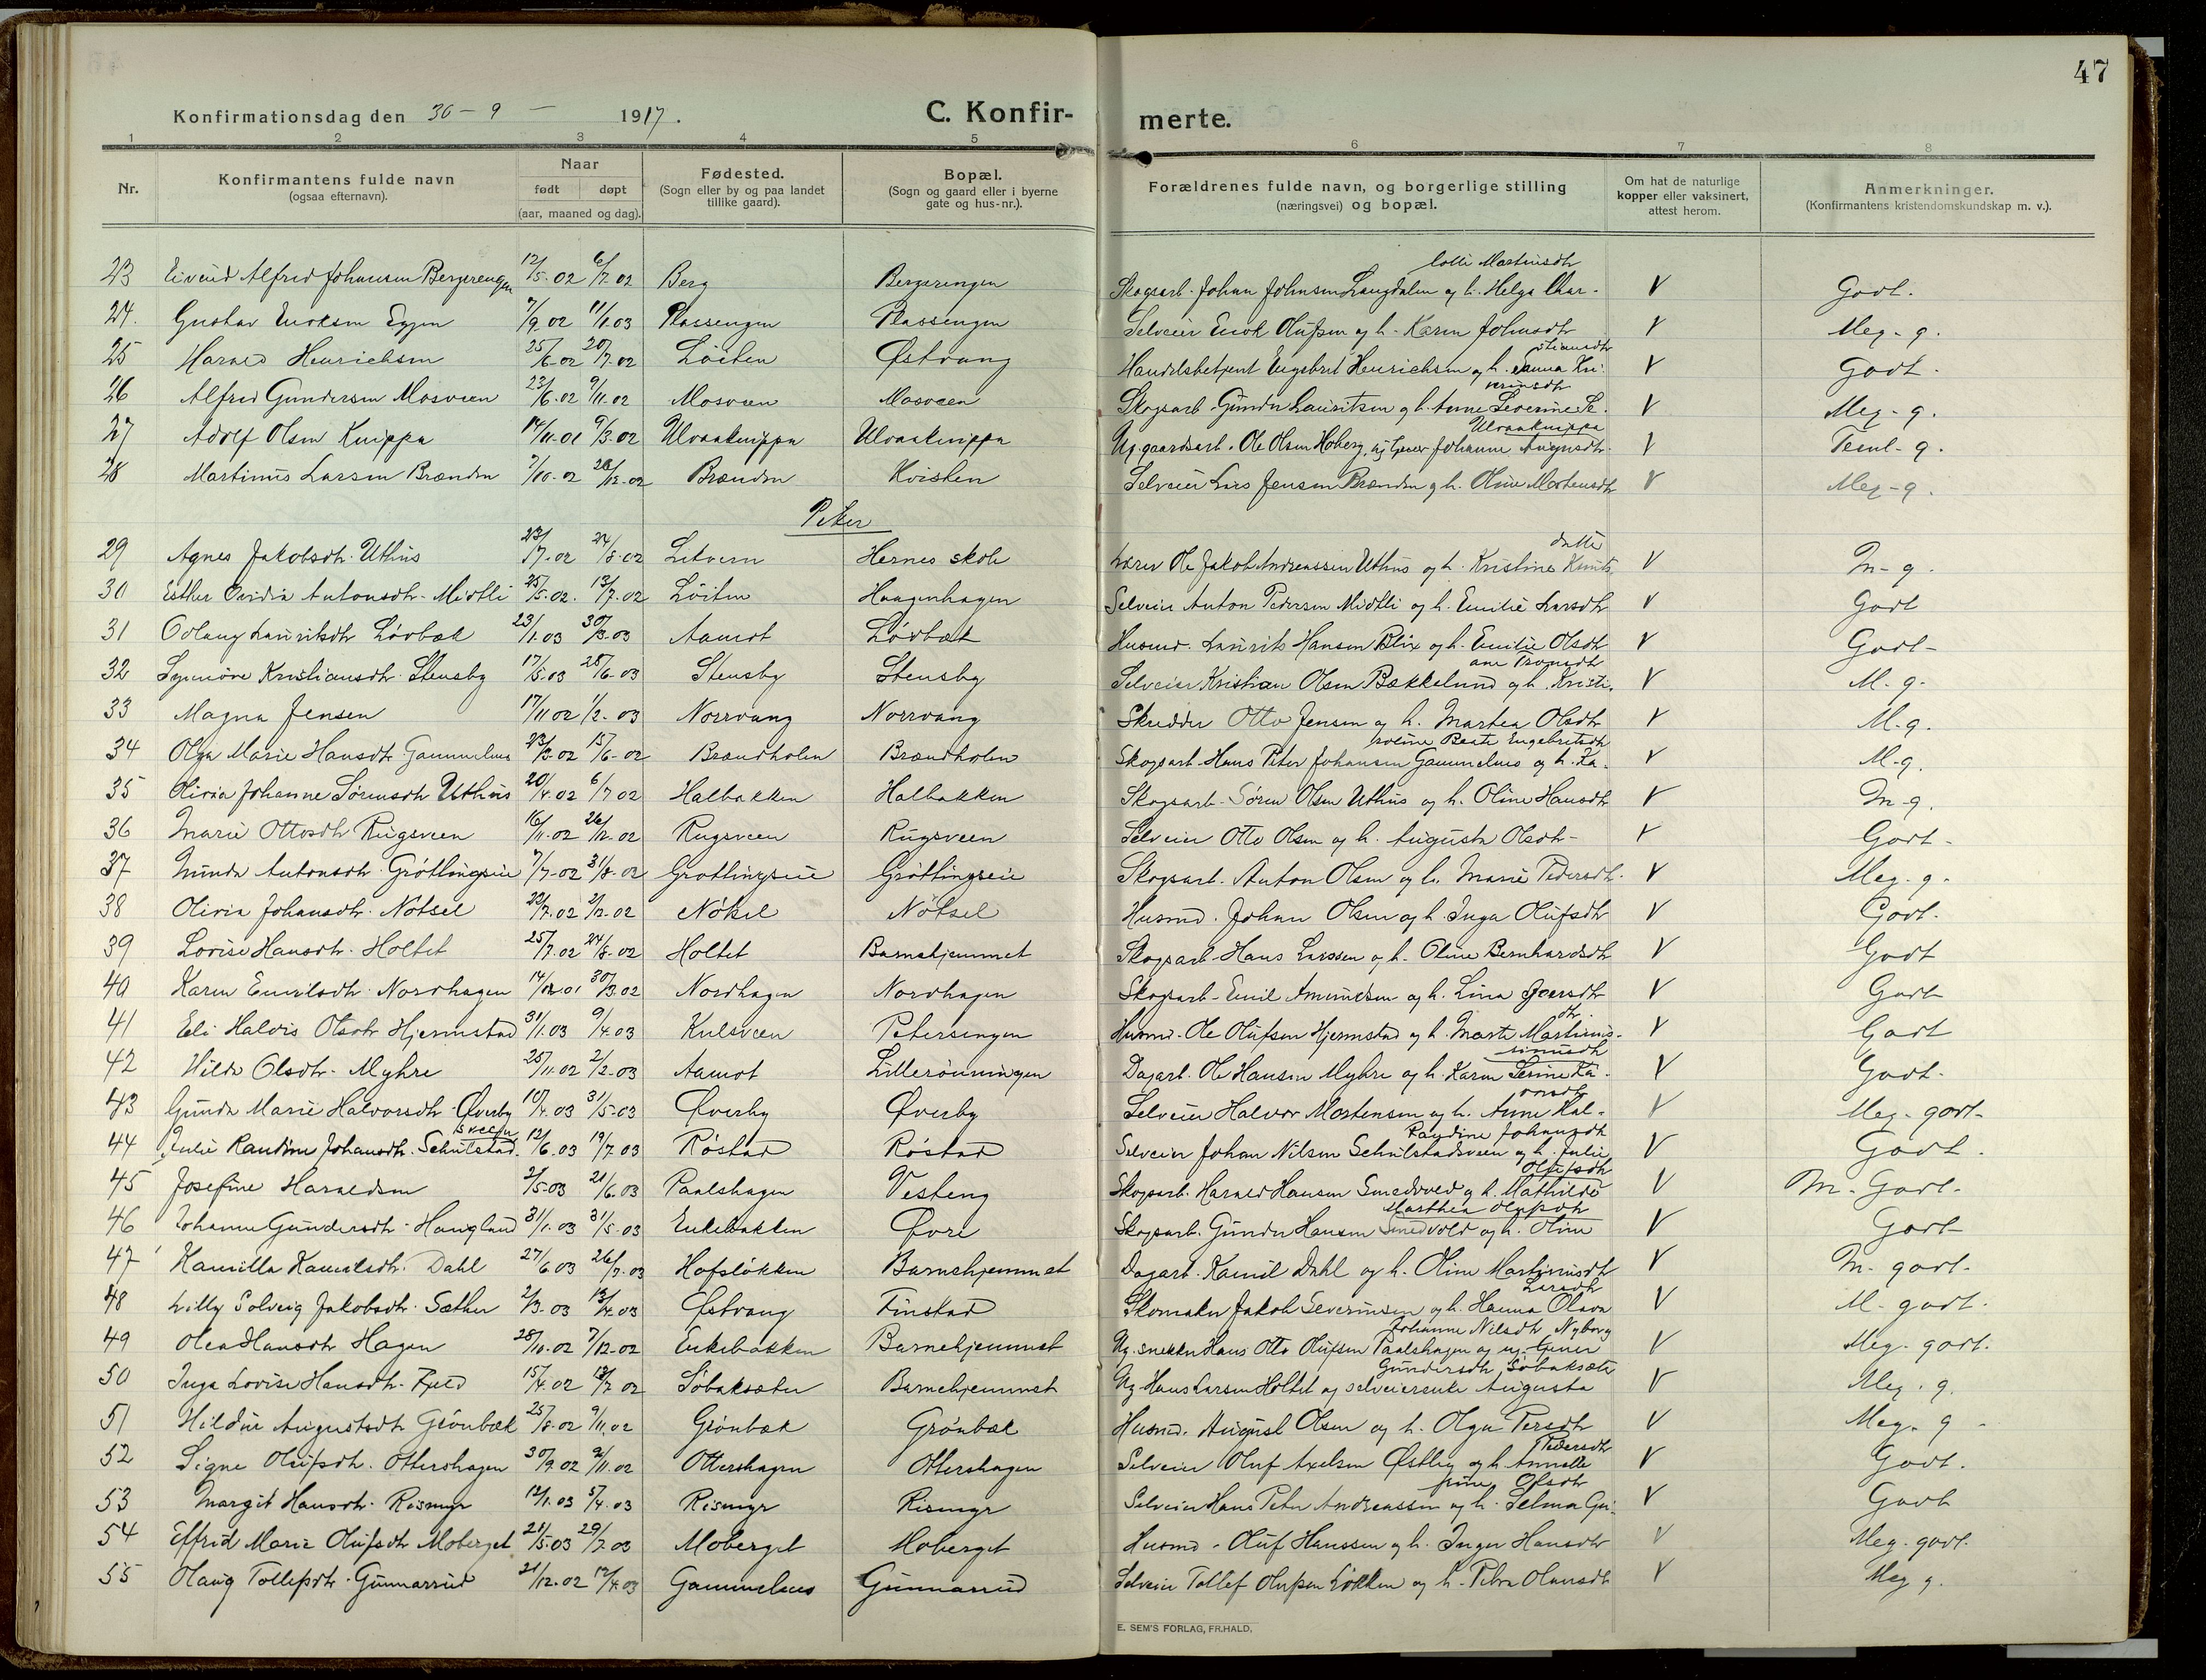 47
Konfirmationsdag den 30 - 9 - 1917. C. Konfir- merte.
1 2 3 4 5 6 7 8
Nr. Konfirmantens fulde navn (ogsaa efternavn). Naar født døpt (aar, maaned og dag). Fødested. (Sogn eller by og paa landet tillike gaard). Bopæl. (Sogn og gaard eller i byerne gate og hus-nr.). Forældrenes fulde navn, og borgerlige stilling (næringsvei) og bopæl. Om hat de naturlige kopper eller vaksinert, attest herom. Anmerkninger. (Konfirmantens kristendomskundskap m. v.).
23 Eivind Alfred Johansen Bergerengen 12/5-02 6/7-02 Berg Bergerengen Skogsarb. Johan Johnsen Langdalen og h. Helga Char- lotte Martinsdtr V Godt.
24. Gustav Eriksen Eggen 7/9 02 11/1 03 Plassengen Plassengen Selveier Erik Olufsen og h. Karen Johnsdtr V Meg - g.
25 Harald Henrichsen 25/6-02 20/7-02 Löiten Østvang Handelsbetjent Engebret Henrichsen og h. Janna Kri- stiansdtr V Godt.
26 Alfred Gundersen Mosveen 23/6-02 9/11-02 Mosveen Mosveen Skogsarb. Gunder Lauritsen og h. Anne Severine Se- verinsdtr V Meg - g.
27 Adolf Olsen Knippa 14/11-01 9/3-02 Ulvaaknippa Ulvaaknippa Ug. gaardsarb. Ole Olsen Hoberg, ug. tjener Johanne Augnsdtr. Ulvaaknippa V Teml - g.
28 Martinus Larsen Brænden 7/10-02 28/12-02 Brænden Kvisten Selveier Lars Jensen Brænden og h. Oline Mortensdtr V Meg - g.
Piker
29 Agnes Jakobsdtr. Uthus 23/7-02 24/8-02 Elverum Hernes skole Lærer Ole Jakob Andreassen Uthus og h. Kristine Knuts datter V M - g.
30 Esther Ovidia Antonsdtr. Midtli 25/5-02. 13/7-02 Löiten Haagenhagen Selveier Anton Pedersen Midtli og h. Emilie Larsdtr V Godt
31 Odlaug Lauritsdtr Lövbæk 23/1.03 30/3-03 Aamot Lövbæk Husmd. Laurits Hansen Blix og h. Emilie Olsdtr V Godt -
32 Synnöve Kristiansdtr. Stensby 17/5.03 28/6-03 Stensby Stensby Selveier Kristian Olsen Bækkelund og h. Kristi- ane Tronsdtr V M. g.
33 Magna Jensen 17/11 02 1/2-03 Norrvang Norrvang Skrædder Otto Jensen og h. Marthea Olsdtr V M. g.
34 Olga Marie Hansdtr. Gammelms 23/3-02 15/6-02 Brændholen Brændholen Skogsarb. Hans Peter Johansen Gammelmo og h. Ka- roline Beate Engebretsdtr V M-g.
35 Olivia Johanne Sörensdtr Uthus 20/4.02 6/7 02 Halbakken Halbakken Skogsarb. Sören Olsen Uthus og h. Oline Hansdtr V M-g.
36 Marie Ottosdtr Rugsveen 16/11-02 26/12-02 Rugsveen Rugsveen Selveier Otto Olsen og h. Augusta Olsdtr - V Godt -
37 Gunda Antonsdtr. Gröttingseie 7/7-02 31/8-02 Gröttingseie Gröttingseie Skogsarb. Anton Olsen og h. Marie Pedersdtr. V Meg. g.
38 Olivia Johansdtr. Nötsel 22/7.02 2/12-02 Nötsel Nötsel Husmd. Johan Olsen og h. Inga Olufsdtr V Godt.
39 Lovise Hansdtr. Holtet 25/7.02 24/8-02 Holtet Barnehjemmet Skogsarb. Hans Larssen og h. Oline Bernhardsdtr V Godt
40 Karen Emilsdtr. Nordhagen 14/12.01 30/3.02 Nordhagen Nordhagen Skogsarb. Emil Amundsen og h. Lina Iversdtr V Godt
41 Eli Halvis Olsdtr Hjermstad 31/1.03 9/4.03 Kulsveen Petersengen Husmd. Ole Olufsen Hjermstad og h. Marte Martinus- dtr. V Godt
42 Hilda Olsdtr. Myhre 25/11-02 2/2-03 Aamot Lillerönningen Dagarb. Ole Hansen Myhre og h. Karen Lenine Ka- sinusdtr V Godt.
43 Gunda Marie Halvorsdtr. Øverby 10/4.03 31/5-03 Øverby Øverby Selveier Halvor Mortensen og h. Anne Hal- vorsdtr V Meg. godt.
44 Julie Randine Johansdtr. Schulstadsveen 12/6.03 19/7.03 Röstad Röstad Selveier Johan Nilsen Schulstadsveen og h. Julie Randine Johansdtr V Godt.
45 Josefine Haraldsen 2/5-03 21/6.03 Paalshagen Vesteng Skogsarb. Harald Hansen Smedvold og h. Mathilde Olufsdtr V M. Godt.
46 Johanne Gundersdtr. Haugland 31/1.03 31/5-03 Enkebakken Øvre Skogsarb. Gunder Hansen Smedvold og h. Oline Marthea Olufsdtr V Godt
47 Kamilla Kamilsdtr. Dahl 27/6.03 26/7-03 Hofslökken Barnehjemmet Dagarb. Kamil Dahl og h. Oline Martinusdtr V M. godt.
48 Lilly Solveig Jakobsdtr. Sæther 2/3-03 13/4.03 Østvang Finstad Skomaker Jakob Severinsen og h. Hanna Olava Larsdtr V M. godt.
49 Olea Hansdtr Hagen 28/10-02 7/12-02 Enkebakken Barnehjemmet Ug. snekker Hans Otto Olufsen Paalshagen og ug. tjener Johanne Nilsdtr Nyborg V Meg. godt.
50 Inga Lovise Hansdtr. Fjeld 15/4.02 13/7 02 Söbaksæter Barnehjemmet Ug. Hans Larsen Holtet og selveierenke Augusta Gundersdtr, Söbaksæter V Meg. g.
51 Hildur Augustsdtr Grönbæk 25/8-02 9/11,02 Grönbæk Grönbæk Husmd. August Olsen og h. Olga Persdtr V Meg. g -
52 Signe Olufsdtr. Ottershagen 30/9.02 2/11.02 Ottershagen Ottershagen Selveier Oluf Axelsen Østby og h. Annette Pedersdtr V Godt.
53 Margit Hansdtr. Rismyr 12/1.03 5/4.03 Rismyr Rismyr Selveier Hans Peter Andreassen og h. Selma Gu- rine Olsdtr V Godt
54 Effrid Marie Olufsdtr Moberget 21/5-03 29/7.03 Moberget Moberget Husmd. Oluf Hanssen og h. Inger Hansdtr V Meg. godt.
55 Olaug Tollefsdtr. Gunnarrud 21/12.02 12/4.03 Gammelmo Gunnarrud Selveier Tollef Olufsen Lökken og h. Petra Olausdtr V Meg g.
E. SEM'S FORLAG, FR.HALD.